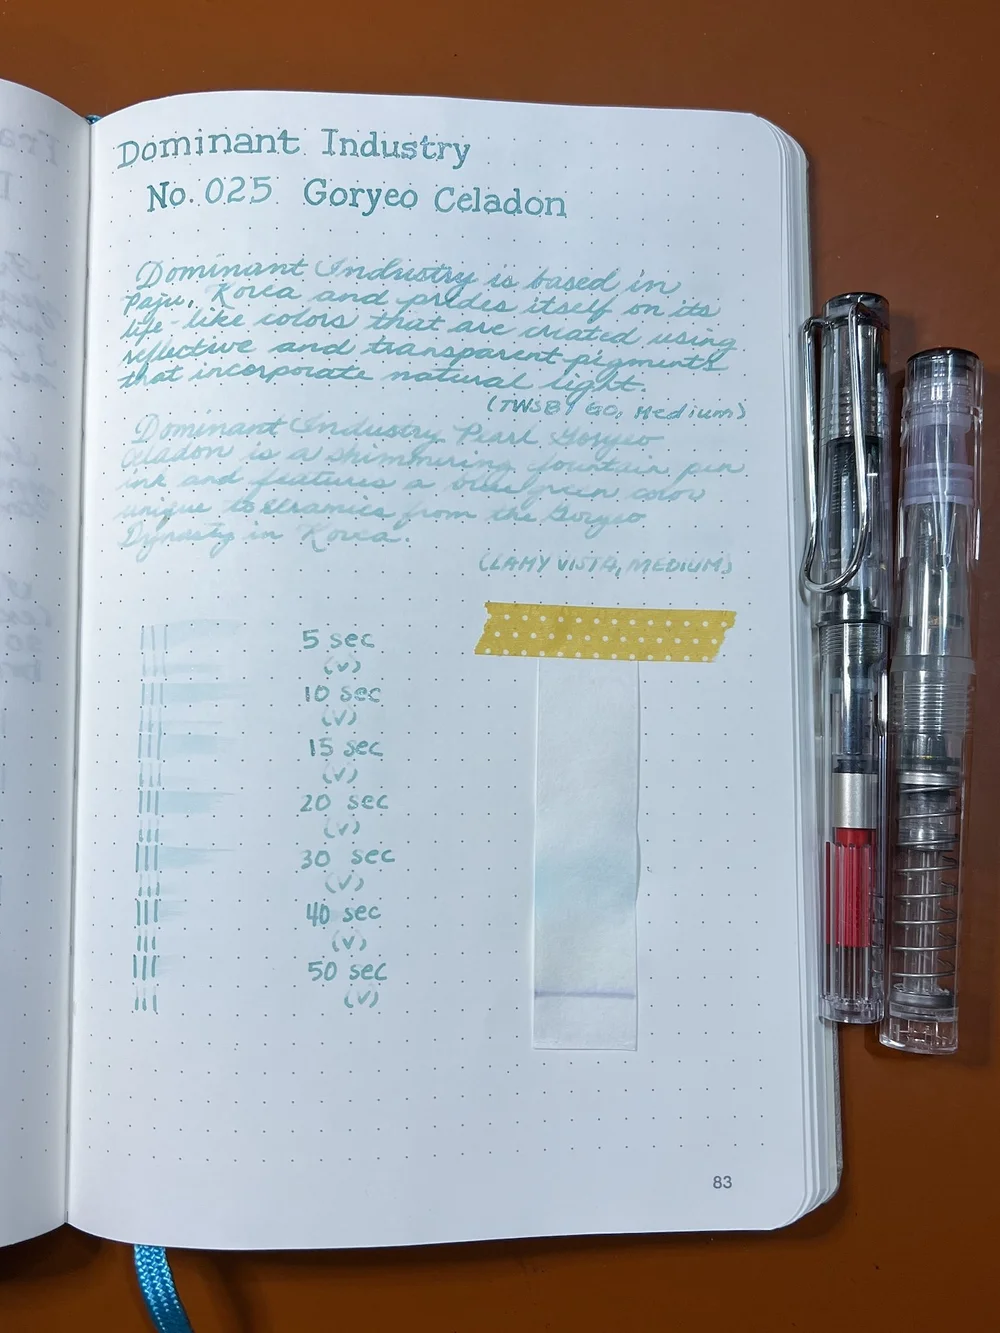 Dominant Industry
No. 025 Goryeo Celadon
Dominant Industry is based in
Paju, Korea and prides itself on its
life-like colors that are created using
reflective and transparent pigments
that incorporate natural light.
(TWSBI GO, Medium)
Dominant Industry Pearl Goryeo
Celadon is a shimmering fountain pen
ink and features a blue green color
unique to ceramics from the Goryeo
Dynasty in Korea.
(LAMY VISTA, MEDIUM)
5 sec
(v)
10 sec
(v)
15 sec
(v)
20 sec
(v)
30 sec
(v)
40 sec
(v)
50 sec
(v)
83